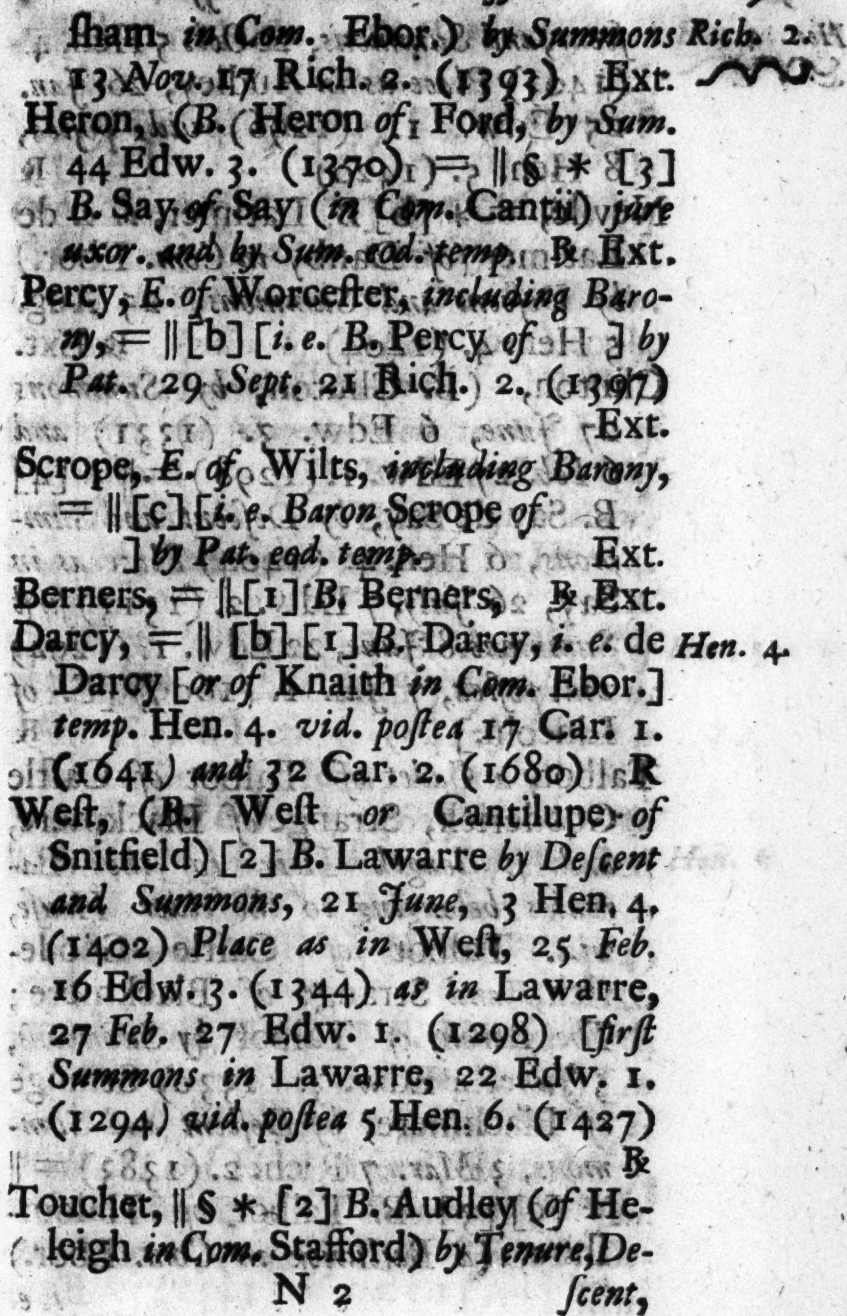 ſham in Com. Ebor.) by Summons Rich. 2.
13 Nov. 17 Rich. 2. (1393) Ext.
Heron, (B. Heron of Ford, by Sum.
44 Edw. 3. (1370) = ‖ § * [3]
B. Say of Say (in Com. Cantii) jure
uxor. and by Sum. eod. temp. ℞ Ext.
Percy, E. of Worceſter, including Baro-
ny, = ‖ [b] [i. e. B. Percy of ] by
Pat. 29 Sept. 21 Rich. 2. (1397)
Ext.
Scrope, E. of Wilts, including Barony,
= ‖ [c] [i. e. Baron Scrope of
] by Pat. eod. temp. Ext.
Berners, = ‖ [1] B. Berners, ℞ Ext.
Darcy, = ‖ [b] [1] B. Darcy, i. e. de Hen. 4.
Darcy [or of Knaith in Com. Ebor.]
temp. Hen. 4. vid. poſtea 17 Car. 1.
(1641) and 32 Car. 2. (1680) R
Weſt, (B. Weſt or Cantilupe of
Snitfield) [2] B. Lawarre by Deſcent
and Summons, 21 June, 3 Hen. 4.
(1402) Place as in Weſt, 25 Feb.
16 Edw. 3. (1344) as in Lawarre,
27 Feb. 27 Edw. 1. (1298) [firſt
Summons in Lawarre, 22 Edw. 1.
(1294) vid. poſtea 5 Hen. 6. (1427)
℞
Touchet, ‖ § * [2] B. Audley (of He-
leigh in Com. Stafford) by Tenure, De-
N 2 ſcent,